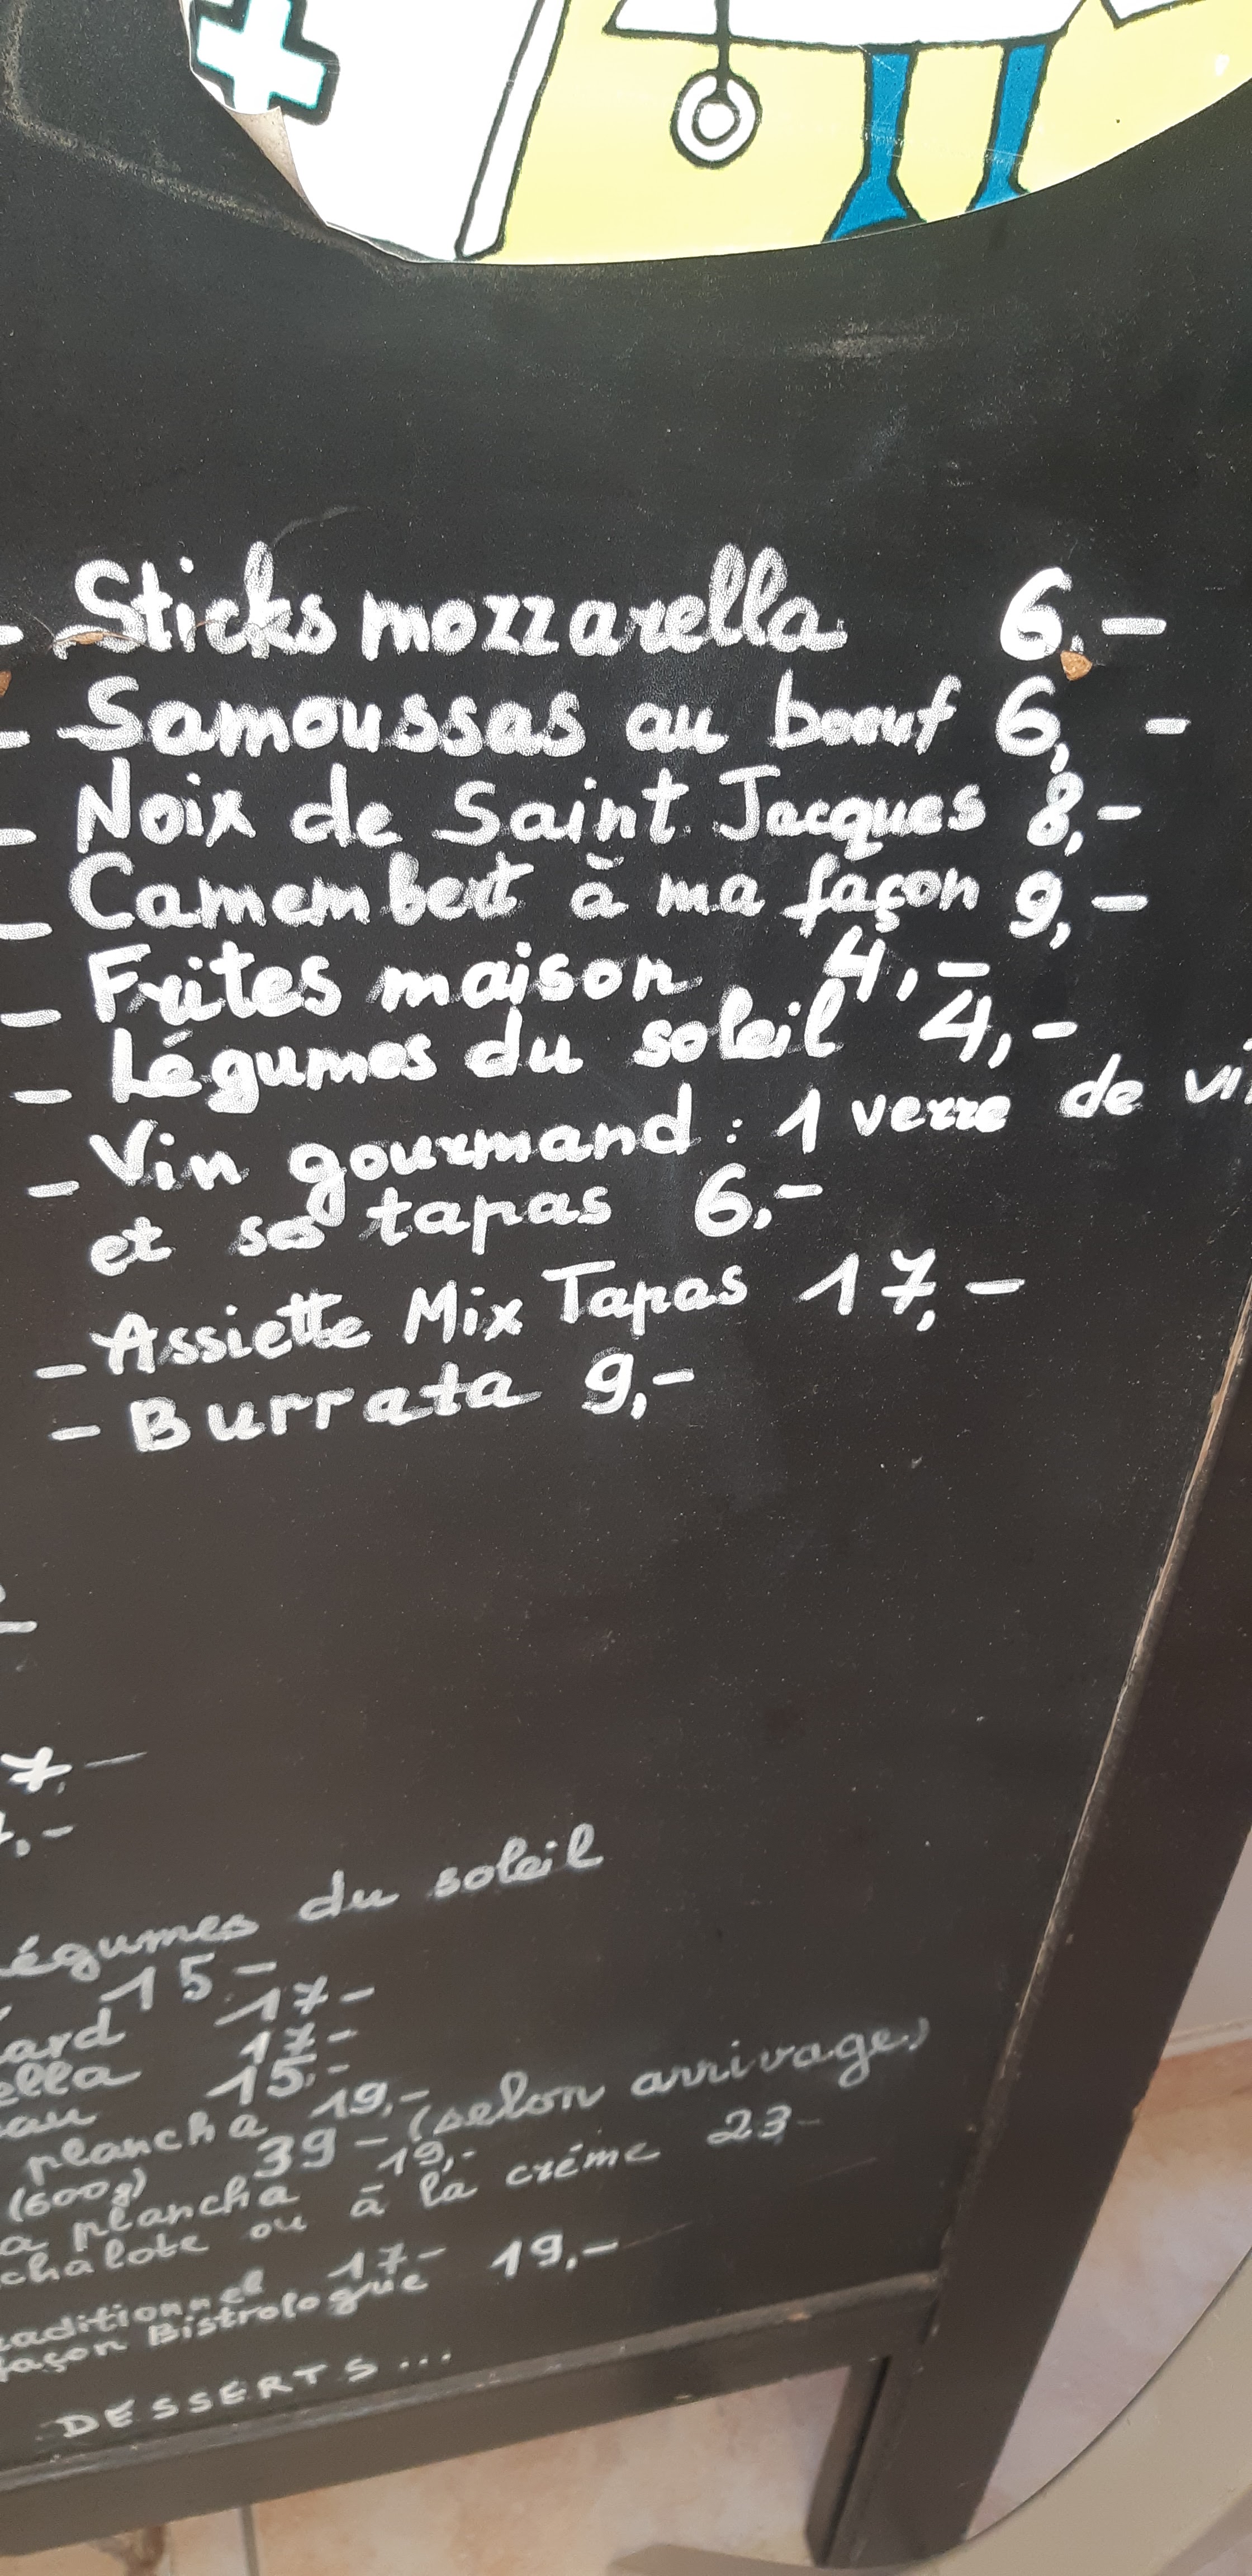 - Sticks mozzarella 6,-
- Samoussas au boeuf 6, -
- Noix de Saint Jacques 8,-
- Camembert à ma façon 9,-
- Frites maison 4,-
- Légumes du soleil 4,-
- Vin gourmand : 1 verre de
et ses tapas 6,-
- Assiette Mix Tapas 17,-
- Burrata 9,-
7,-
,-
légumes du soleil
15,-
17,-
17,-
15,-
plancha 19,-
(600g) 39- (selon arrivage)
plancha 19,-
ou à la crème 23,-
17,-
façon Bistrologue 19,-
DESSERTS...